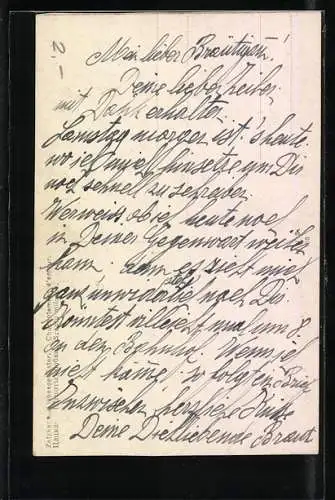 2.-
Mein lieber Bräutigam!
Deine lieben Zeilen
mit Dank erhalten
Samstag morgen ist's heute
wo ich mich hinsetze um Dir
noch schnell zu schreiben
Wer weiss ob ich heute noch
in Deiner Gegenwart weilen
kann, denn es zieht mich
ganz unwiderstehlich nach Dir
Könntest vielleicht mal um 8
an den Bahnhof. Wenn ich
nicht komme, so folgt ein Brief
Inzwischen herzliche Küsse
Deine Dichliebende Braut